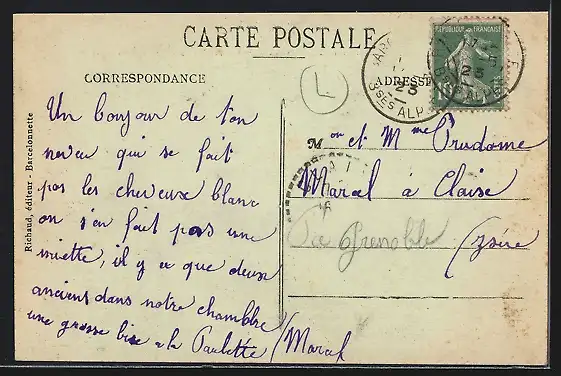 CARTE POSTALE
CORRESPONDANCE
ADRESSE
RÉPUBLIQUE FRANÇAISE
23
Bses ALP
L
Richaud, éditeur - Barcelonnette
Un bonjour de ton
neveu qui se fait
pas les cheveux blanc
on s'en fait pas une
miette, il y a que deux
anciens dans notre chambre
une grosse bise a la Paulette
Mon et Mme Prudome
Marcel à Claise
Grenoble
Isère